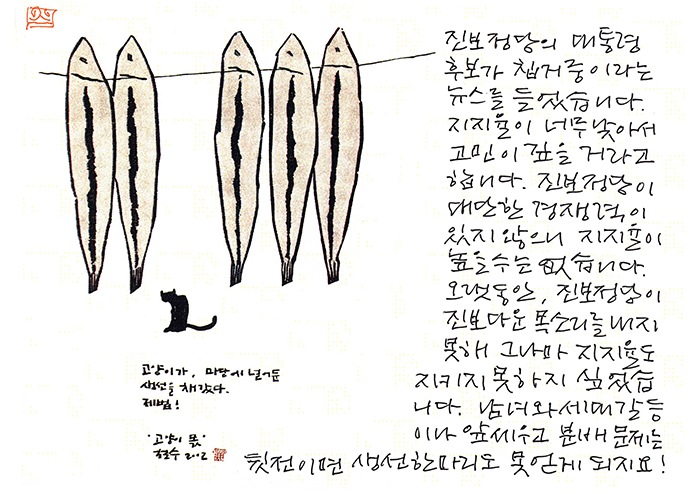 진보정당의 대통령
후보가 칩거중이라는
뉴스를 들었습니다.
지지율이 너무 낮아서
고민이 깊을 거라고
합니다. 진보정당이
대단한 경쟁력이
있지 않으니 지지율이
높을 수는 없습니다.
오랫동안, 진보정당이
진보다운 목소리를 내지
못해 그나마 지지율도
지키지 못하지 싶었습
니다. 남녀와 세대갈등
이나 앞세우고 분배 문제는
뒷전이면 생선 한마리도 못 얻게 되지요!
고양이가, 마당에 널어둔
생선을 채갔다.
제법!
'고양이 몫'
철수 2012